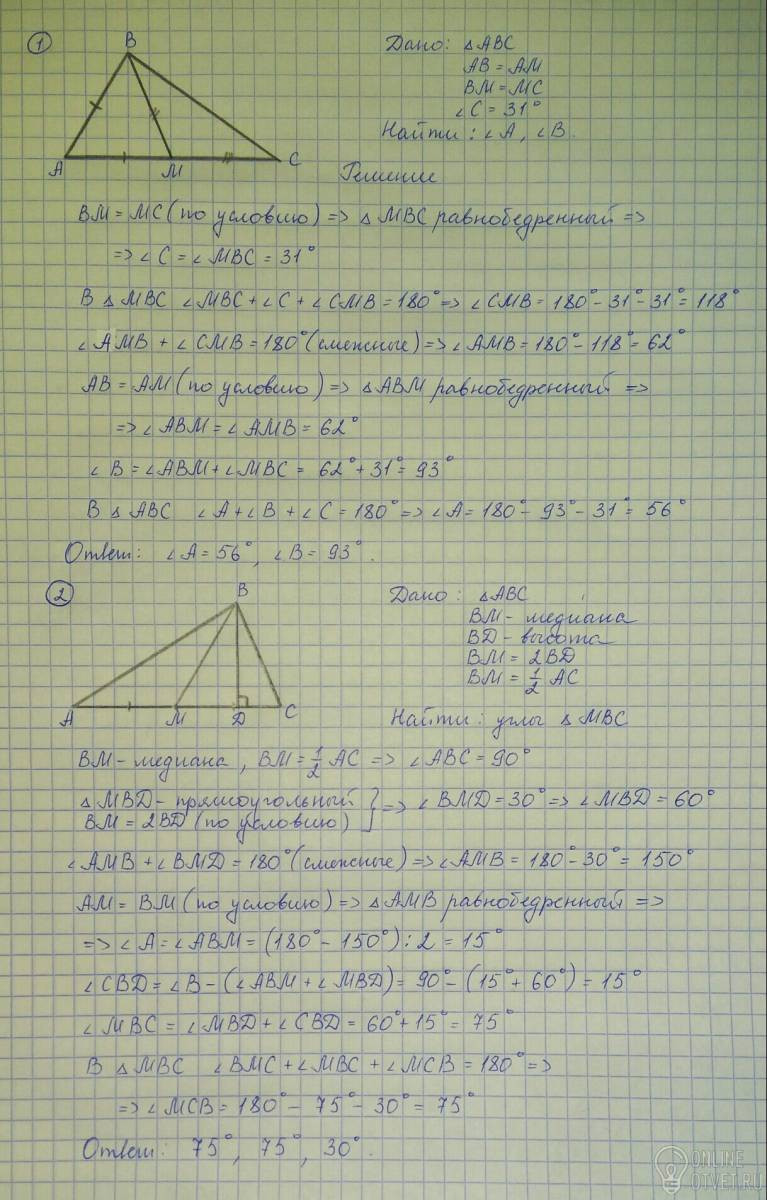 1
B
A
M
C
Дано: △ABC
AB = AM
BM = MC
∠C = 31°
Найти: ∠A, ∠B.
Решение
BM = MC (по условию) => △MBC равнобедренный =>
=> ∠C = ∠MBC = 31°
В △MBC ∠MBC + ∠C + ∠CMB = 180° => ∠CMB = 180° - 31° - 31° = 118°
∠AMB + ∠CMB = 180° (смежные) => ∠AMB = 180° - 118° = 62°
AB = AM (по условию) => △ABM равнобедренный =>
=> ∠ABM = ∠AMB = 62°
∠B = ∠ABM + ∠MBC = 62° + 31° = 93°
В △ABC ∠A + ∠B + ∠C = 180° => ∠A = 180° - 93° - 31° = 56°
Ответ: ∠A = 56°, ∠B = 93°.
2
B
A
M
D
C
Дано: △ABC
BM - медиана
BD - высота
BM = 2BD
BM = 1/2 AC
Найти: углы △MBC
BM - медиана, BM = 1/2 AC => ∠ABC = 90°
△MBD - прямоугольный
BM = 2BD (по условию) } => ∠BMD = 30° => ∠MBD = 60°
∠AMB + ∠BMD = 180° (смежные) => ∠AMB = 180° - 30° = 150°
AM = BM (по условию) => △AMB равнобедренный =>
=> ∠A = ∠ABM = (180° - 150°) : 2 = 15°
∠CBD = ∠B - (∠ABM + ∠MBD) = 90° - (15° + 60°) = 15°
∠MBC = ∠MBD + ∠CBD = 60° + 15° = 75°
В △MBC ∠BMC + ∠MBC + ∠MCB = 180° =>
=> ∠MCB = 180° - 75° - 30° = 75°
Ответ: 75°, 75°, 30°.
ONLINE
OTVET.RU